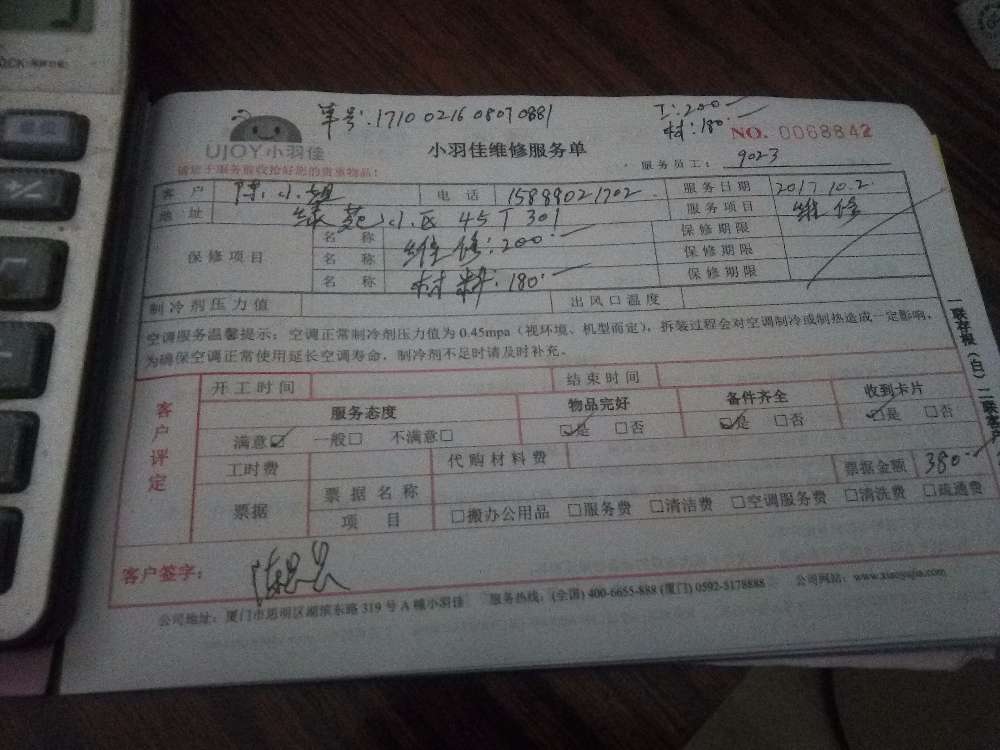 单号:1710 0216 0807 0881
工:200
材:180
NO. 0068842
UJOY小羽佳
小羽佳维修服务单
服务员工: 9023
请您于服务前收拾好您的贵重物品!
客 户 陈小姐 电 话 15889021702 服务日期 2017.10.2
地 址 绿苑小区 45T 301 服务项目 维修
保修项目
名 称 维修:200. 保修期限
名 称 保修期限
名 称 材料:180. 保修期限
制冷剂压力值 出风口温度
空调服务温馨提示:空调正常制冷剂压力值为0.45mpa(视环境、机型而定),拆装过程会对空调制冷或制热造成一定影响,
为确保空调正常使用延长空调寿命,制冷剂不足时请及时补充。
客户评定
开工时间 结束时间
服务态度 物品完好 备件齐全 收到卡片
满意☑ 一般□ 不满意□ ☑是 □否 ☑是 □否 ☑是 □否
工时费 代购材料费 票据金额 380.
票据 票据名称
项 目 □搬办公用品 □服务费 □清洁费 □空调服务费 □清洗费 □疏通费
客户签字:
公司地址:厦门市思明区湖滨东路319号A幢小羽佳 服务热线:(全国) 400-6655-888 (厦门) 0592-5178888 公司网站:www.xiaoyujia.com
一联存根(白)二联客户